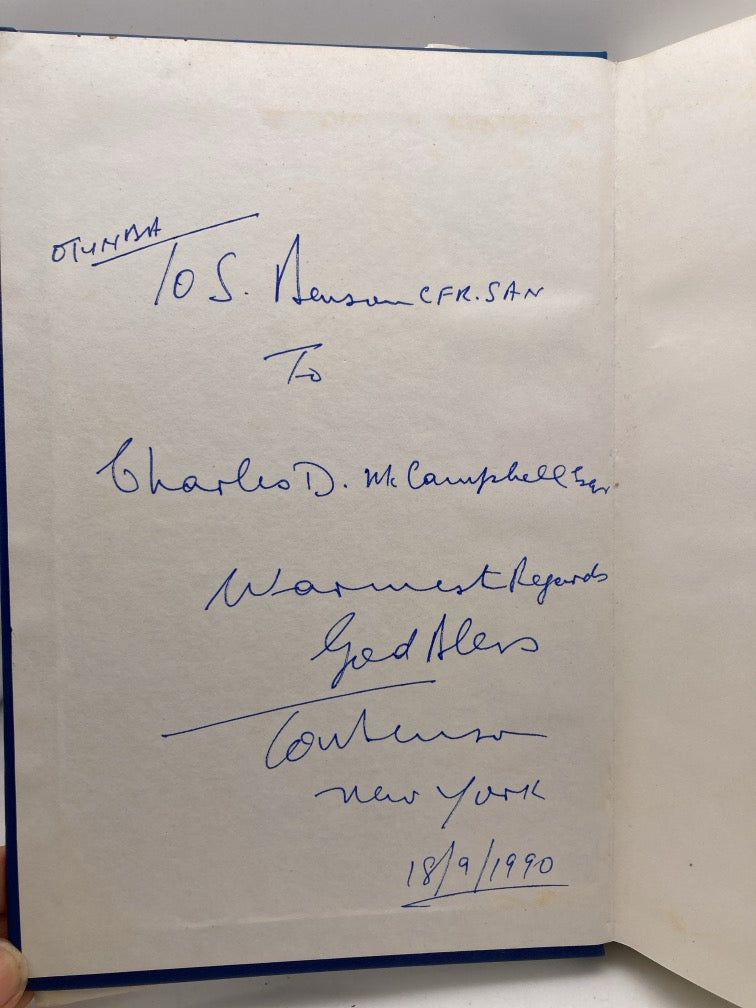 OTUNBA
TOS. Benson CFR. SAN
To
Charles D. McCampbell Esqr
Warmest Regards
God Bless
New York
18/9/1990